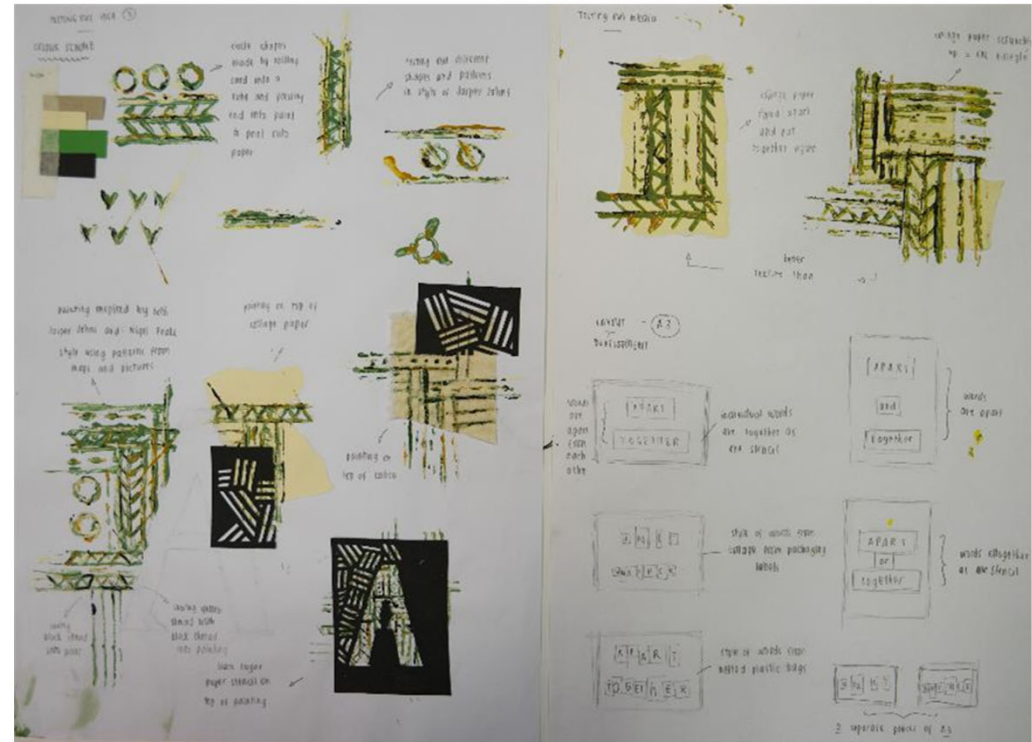 TESTING OUT IDEA 3
COLOUR SCHEME
circle shapes
made by rolling
card into a
tube and pressing
end into paint
to print onto
paper
testing out different
shapes and patterns
in style of Jasper Johns
painting inspired by both
Jasper Johns and Nigel Peake
style using patterns from
maps and pictures
painting on top of
collage paper
painting on
top of calico
black thread
into paint
black thread
into painting
paper stencil on
top of painting
TESTING OUT MEDIA
collage paper
ripped apart
and put
together again
better
texture than
LAYOUT - A3
DEVELOPMENT
words
are
apart
from
each
other
APART
TOGETHER
individual words
are together as
one stencil
APART
and
together
words
are apart
style of words from
collage from packaging
labels
APART
or
together
words altogether
as one stencil
APART
TOGETHER
style of words from
melted plastic bags
2 separate pieces of A3